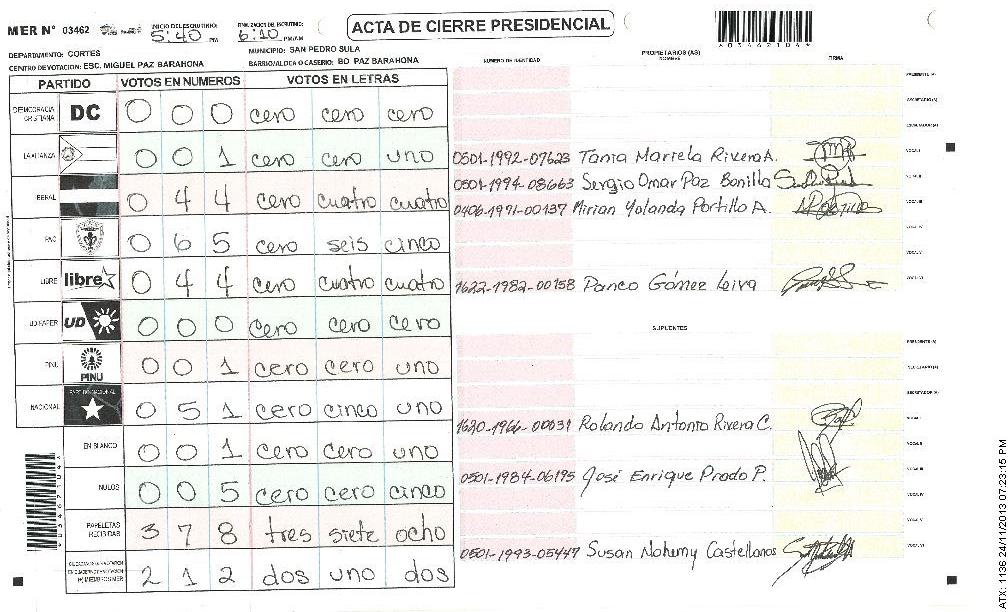 MER N° 03462
INICIO DEL ESCRUTINIO: 5:40 PM
FINALIZACION DEL ESCRUTINIO: 6:10 PM/AM
ACTA DE CIERRE PRESIDENCIAL
*03462104*
DEPARTAMENTO: CORTES
MUNICIPIO: SAN PEDRO SULA
CENTRO DE VOTACION: ESC. MIGUEL PAZ BARAHONA
BARRIO/ALDEA O CASERIO: BO PAZ BARAHONA
PARTIDO VOTOS EN NUMEROS VOTOS EN LETRAS
DEMOCRACIA CRISTIANA DC 0 0 0 cero cero cero
LA ALIANZA 0 0 1 cero cero uno
LIBERAL 0 4 4 cero cuatro cuatro
PAC 0 6 5 cero seis cinco
LIBRE libre 0 4 4 cero cuatro cuatro
UD/FAPER UD 0 0 0 cero cero cero
PINU PINU 0 0 1 cero cero uno
NACIONAL PARTIDO NACIONAL 0 5 1 cero cinco uno
EN BLANCO 0 0 1 cero cero uno
NULOS 0 0 5 cero cero cinco
PAPELETAS RECIBIDAS 3 7 8 tres siete ocho
(+) MIEMBROS MER 2 1 2 dos uno dos
PROPIETARIOS (AS)
NUMERO DE IDENTIDAD NOMBRE FIRMA
PRESIDENTE (A)
SECRETARIO (A)
ESCRUTADOR (A)
0501-1992-07623 Tania Mariela Rivera A. VOCAL I
0501-1994-08663 Sergio Omar Paz Bonilla VOCAL II
0406-1971-00137 Mirian Yolanda Portillo A. VOCAL III
VOCAL IV
VOCAL V
1622-1982-00158 Danco Gómez Leiva VOCAL VI
SUPLENTES
PRESIDENTE (A)
SECRETARIO (A)
ESCRUTADOR (A)
1620-1966-00031 Rolando Antonio Rivera C. VOCAL I
VOCAL II
0501-1984-06195 José Enrique Prado P. VOCAL III
VOCAL IV
VOCAL V
0501-1993-05447 Susan Nohemy Castellanos VOCAL VI
ATX: 1136 24/11/2013 07:23:15 PM